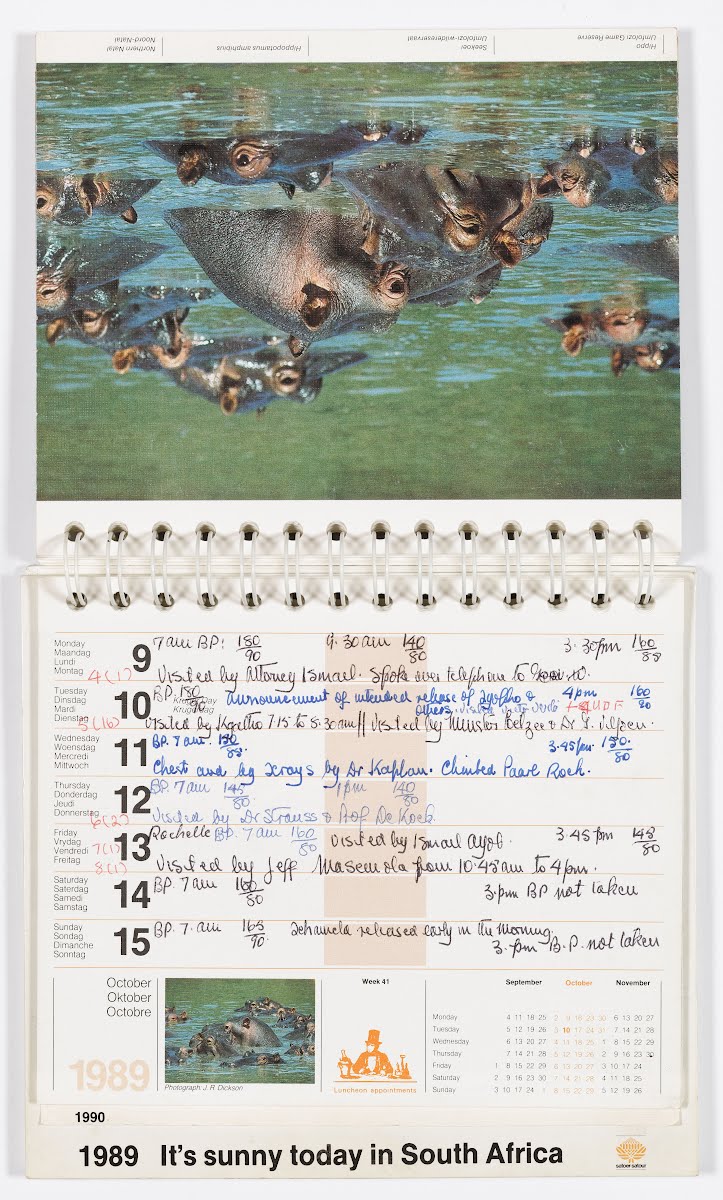 Hippo
Umfolozi Game Reserve
Seekoei
Umfolozi-wildereservaat
Hippopotamus amphibius
Northern Natal
Noord-Natal
Monday
Maandag
Lundi
Montag
9
7am BP: 180/90 9.30am 140/80 3.30pm 160/88
4(1) Visited by Attorney Ismail. Spoke over telephone to
Tuesday
Dinsdag
Mardi
Dienstag
10
Kruger Day
Krugerdag
BP. 180/90 announcement of intended release of 4pm 160/90
others, UDF
5(16) Visited by Kgatho 7.15 to 8.30am // Visited by Minister & Dr G. Viljoen.
Wednesday
Woensdag
Mercredi
Mittwoch
11
BP. 7am. 3.45pm
Chest and leg xrays by Dr Kaplan. Climbed Paarl Rock.
Thursday
Donderdag
Jeudi
Donnerstag
12
BP. 7am 145/80 1pm 140/80
6(2) Visited by Dr Strauss & Prof De Kock.
Friday
Vrydag
Vendredi
Freitag
13
Rochelle BP. 7am 160/80 Visited by Ismail Ayob. 3.45pm 145/80
7(1)
8(1) Visited by Jeff Masemola from 10.45am to 4pm.
Saturday
Saterdag
Samedi
Samstag
14
BP. 7am 160/80 3.pm BP not taken
Sunday
Sondag
Dimanche
Sonntag
15
BP. 7.am 165/90. released early in the morning.
3.pm B.P. not taken
October
Oktober
Octobre
1989
Photograph: J. R. Dickson
Week 41
Luncheon appointments
September October November
Monday 4 11 18 25 2 9 16 23 30 6 13 20 27
Tuesday 5 12 19 26 3 10 17 24 31 7 14 21 28
Wednesday 6 13 20 27 4 11 18 25 1 8 15 22 29
Thursday 7 14 21 28 5 12 19 26 2 9 16 23 30
Friday 1 8 15 22 29 6 13 20 27 3 10 17 24
Saturday 2 9 16 23 30 7 14 21 28 4 11 18 25
Sunday 3 10 17 24 1 8 15 22 29 5 12 19 26
1990
1989 It's sunny today in South Africa
satour·satoer